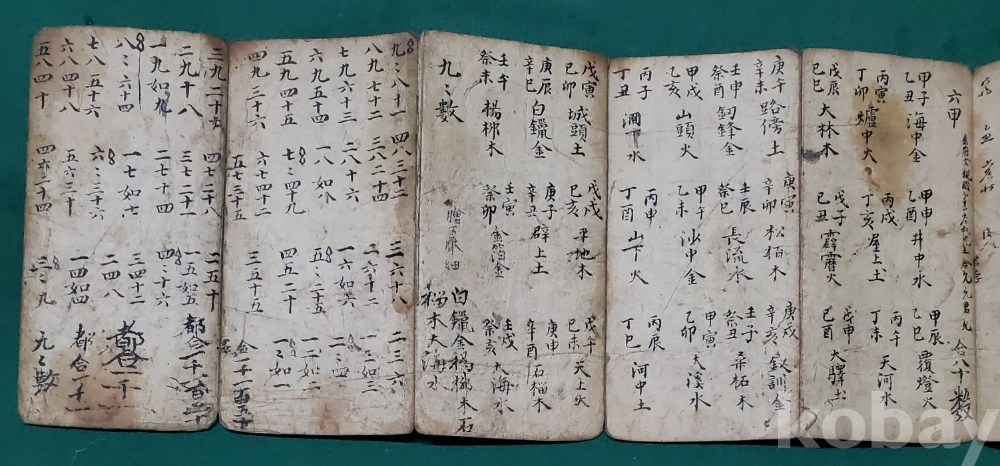 六甲
合八十数
甲子乙丑 海中金 甲申乙酉 井中水 甲辰乙巳 覆燈火
丙寅丁卯 爐中火 丙戌丁亥 屋上土 丙午丁未 天河水
戊辰己巳 大林木 戊子己丑 霹靂火 戊申己酉 大驛土
庚午辛未 路傍土 庚寅辛卯 松柏木 庚戌辛亥 釵釧金
壬申癸酉 釰鋒金 壬辰癸巳 長流水 壬子癸丑 桑柘木
甲戌乙亥 山頭火 甲午乙未 沙中金 甲寅乙卯 大溪水
丙子丁丑 澗下水 丙申丁酉 山下火 丙辰丁巳 河中土
戊寅己卯 城頭土 戊戌己亥 平地木 戊午己未 天上火
庚辰辛巳 白鑞金 庚子辛丑 辟上土 庚申辛酉 石榴木
壬午癸未 楊柳木 壬寅癸卯 金箔金 壬戌癸亥 大海水
白鑞金楊柳木石
榴木大海水
九〻數
九〻八十一 四八三十二 三六十八 二三六
八九七十二 三八二十四 二六十二 一三如三
七九六十三 二八十六 一六如六 二〻四
六九五十四 一八如八 五〻二十五 一二如二
五九四十五 七〻四十九 四五二十 一〻如一
四九三十六 六七四十二 三五十五
五七三十五
三九二十七 四七二十八 二五十
二九十八 三七二十一 一五如五 都合一千一百
一九如九 二七十四 四〻十六
八〻六十四 一七如七 三四十二 都合一千
七八五十六 六〻三十六 二四八
六八四十八 五六三十 一四如四 都合一千
五八四十 四六二十四 三〻九 九〻數
kobay